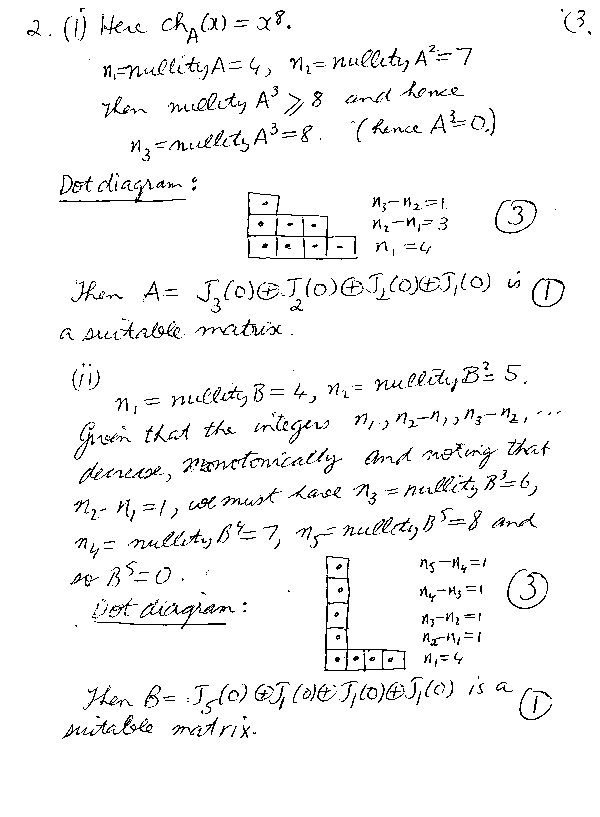 2. (i) Here ch_A(x) = x⁸. (3.
n₁ = nullity A = 4, n₂ = nullity A² = 7
Then nullity A³ ⩾ 8 and hence
n₃ = nullity A³ = 8. (hence A³ = 0.)
Dot diagram:
n₃ - n₂ = 1.
n₂ - n₁ = 3 (3)
n₁ = 4
Then A = J₃(0) ⊕ J₂(0) ⊕ J₂(0) ⊕ J₁(0) is (1)
a suitable matrix.
(ii)
n₁ = nullity B = 4, n₂ = nullity B² = 5.
Given that the integers n₁, n₂-n₁, n₃-n₂, ...
decrease, monotonically and noting that
n₂ - n₁ = 1, we must have n₃ = nullity B³ = 6,
n₄ = nullity B⁴ = 7, n₅ = nullity B⁵ = 8 and
so B⁵ = 0.
n₅ - n₄ = 1
Dot diagram: n₄ - n₃ = 1 (3)
n₃ - n₂ = 1
n₂ - n₁ = 1
n₁ = 4
Then B = J₅(0) ⊕ J₁(0) ⊕ J₁(0) ⊕ J₁(0) is a (1)
suitable matrix.